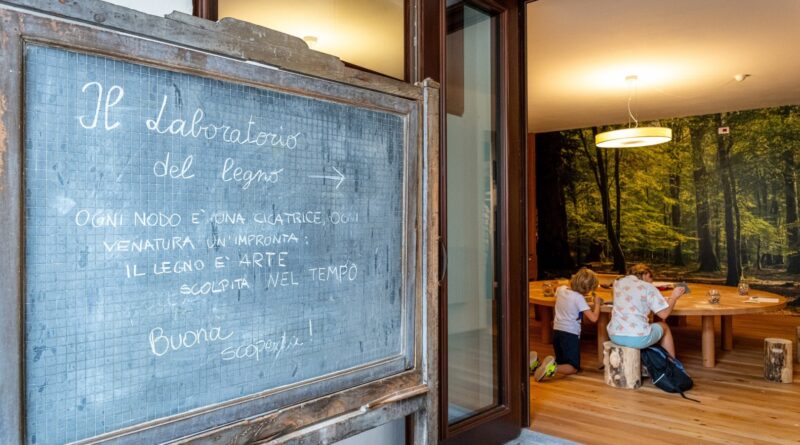 Il Laboratorio
del legno →
OGNI NODO E' UNA CICATRICE, OGNI
VENATURA UN'IMPRONTA:
IL LEGNO E' ARTE
SCOLPITA NEL TEMPO
Buona
scoperta!